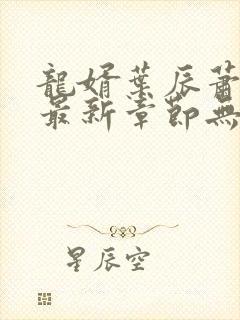 龍婿葉辰蕭
最新章節無
星辰空